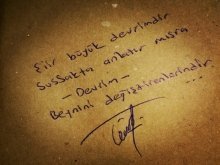 Şiir büyük devrimdir
Sussakta anlatır mısra
-Devrim-
Beynini değiştirenlerindir...